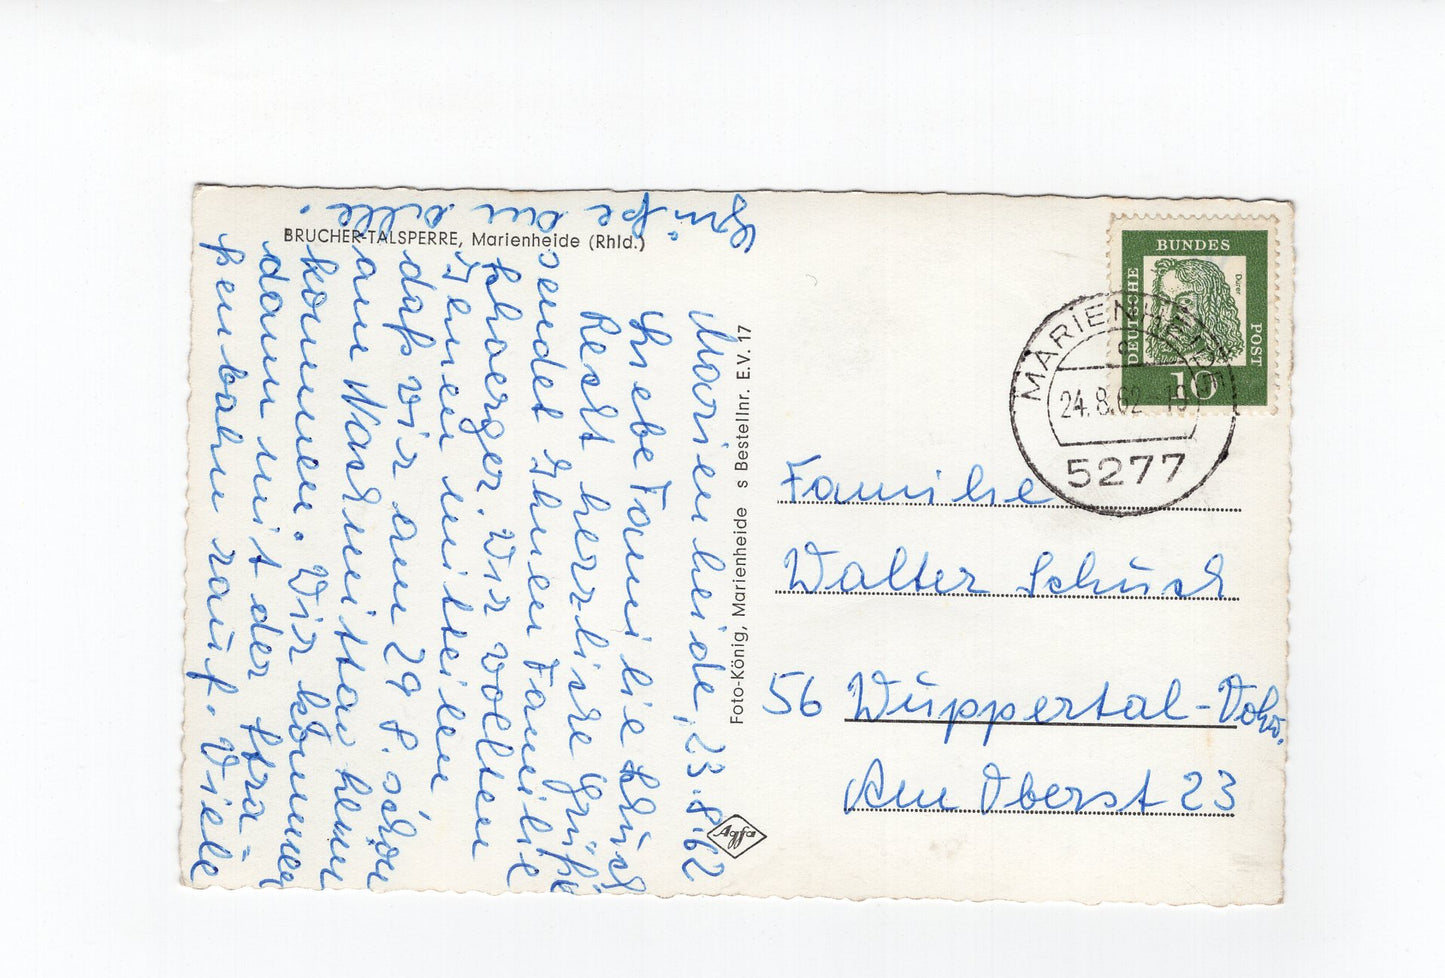 BRUCHER-TALSPERRE, Marienheide (Rhld.)
Marienheide, 23.8.62
Liebe Familie Schüch
Recht herzliche Grüße
sendet Ihnen Familie
Wir wollten
Ihnen mitteilen
daß wir am 29 8. schon
am Nachmittag
kommen. Wir kommen
dann mit der Stra-
ßenbahn rauf. Viele
Grüße an alle.
Foto-König, Marienheide s Bestellnr. E.V. 17
Agfa
DEUTSCHE
BUNDES
POST
Dürer
10
MARIENHEIDE
24.8.62
5277
Familie
Walter Schüch
56 Wuppertal-Vohw.
Am Oberst 23